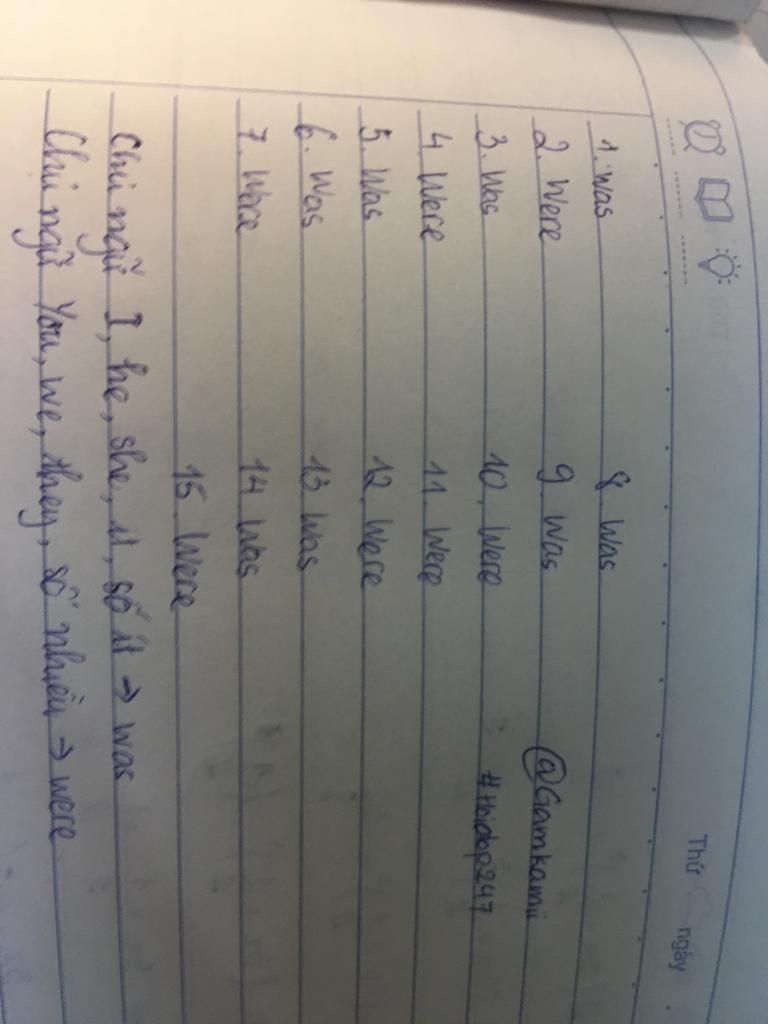 Thứ ngày
1. Was 8. Was
2. Were 9. Was @Gamkamii
3. Was 10. Were #Hoidap247
4. Were 11. Were
5. Was 12. Were
6. Was 13. Was
7. Were 14. Was
15. Were
Chủ ngữ I, he, she, it, số ít → was
Chủ ngữ You, we, they, số nhiều → were